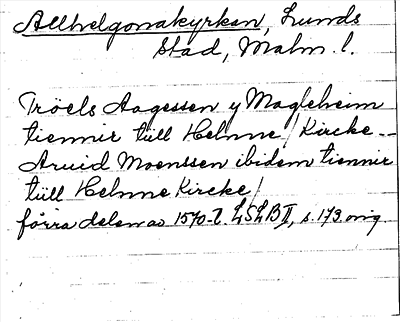 Allhelgonakyrkan, Lunds
stad, Malm. l.
Tröels Aagessen y Magleheim
tiennir tüll Helnne / Kircke -
Aruid Moenssen ibidem tiennir
tüll Helnne Kircke /
förra delen av 1570-t. LSLB II, s. 173 orig.